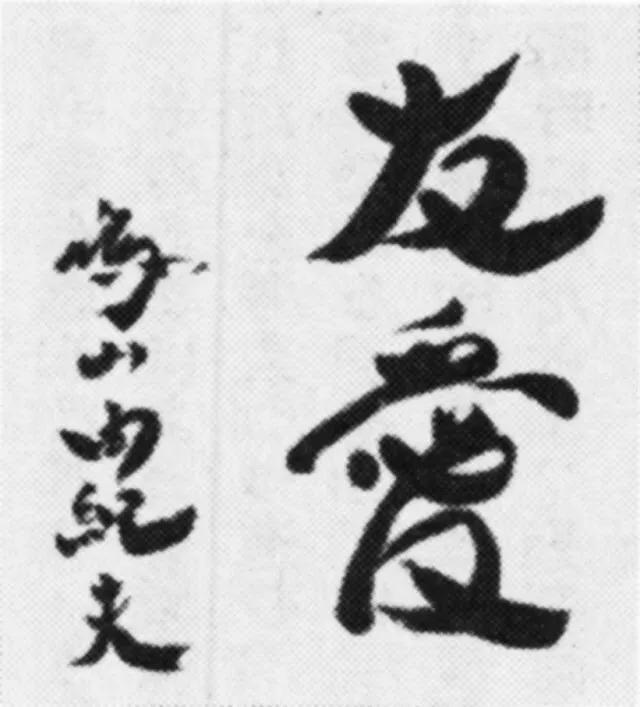 友愛
鳩山由紀夫